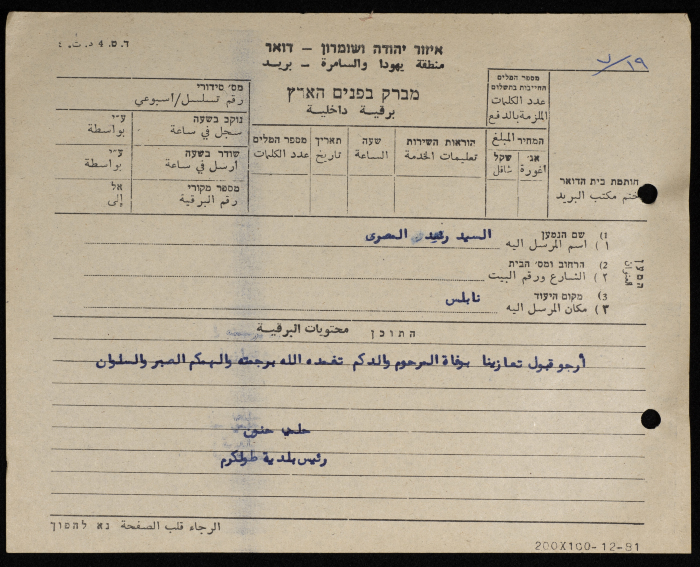 ד.ט. 4 د.ت. ٤
איזור יהודה ושומרון - דואר
منطقة يهودا والسامرة - بريد
מברק בפנים הארץ
برقية داخلية
١٩/٧
מס׳ סידורי
رقم تسلسل/אسبوعي
נוקב בשעה ע״י
سجل في ساعة بواسطة
שודר בשעה ע״י
أرسل في ساعة بواسطة
מספר מקורי אל
رقم البرقية إلى
מספר המלים
החייבות בתשלום
عدد الكلمات
الملزمة بالدفع
המחיר المبلغ
שקל אג׳
شاقل اغورة
הוראות השירות
تعليمات الخدمة
שעה
الساعة
תאריך
تاريخ
מספר המלים
عدد الكلمات
חותמת בית הדואר
ختم مكتب البريد
המען
العنوان
1) שם הנמען
١) اسم المرسل اليه
السيد المصرى
2) הרחוב ומס׳ הבית
٢) الشارع ورقم البيت
3) מקום היעוד
٣) مكان المرسل اليه
نابلس
התוכן محتويات البرقية
أرجو قبول تعازينا بوفاة المرحوم والدكم تغمده الله برحمته والهمكم الصبر والسلوان
حلمي حنون
رئيس بلدية طولكرم
الرجاء قلب الصفحة נא להפוך
200X100-12-81